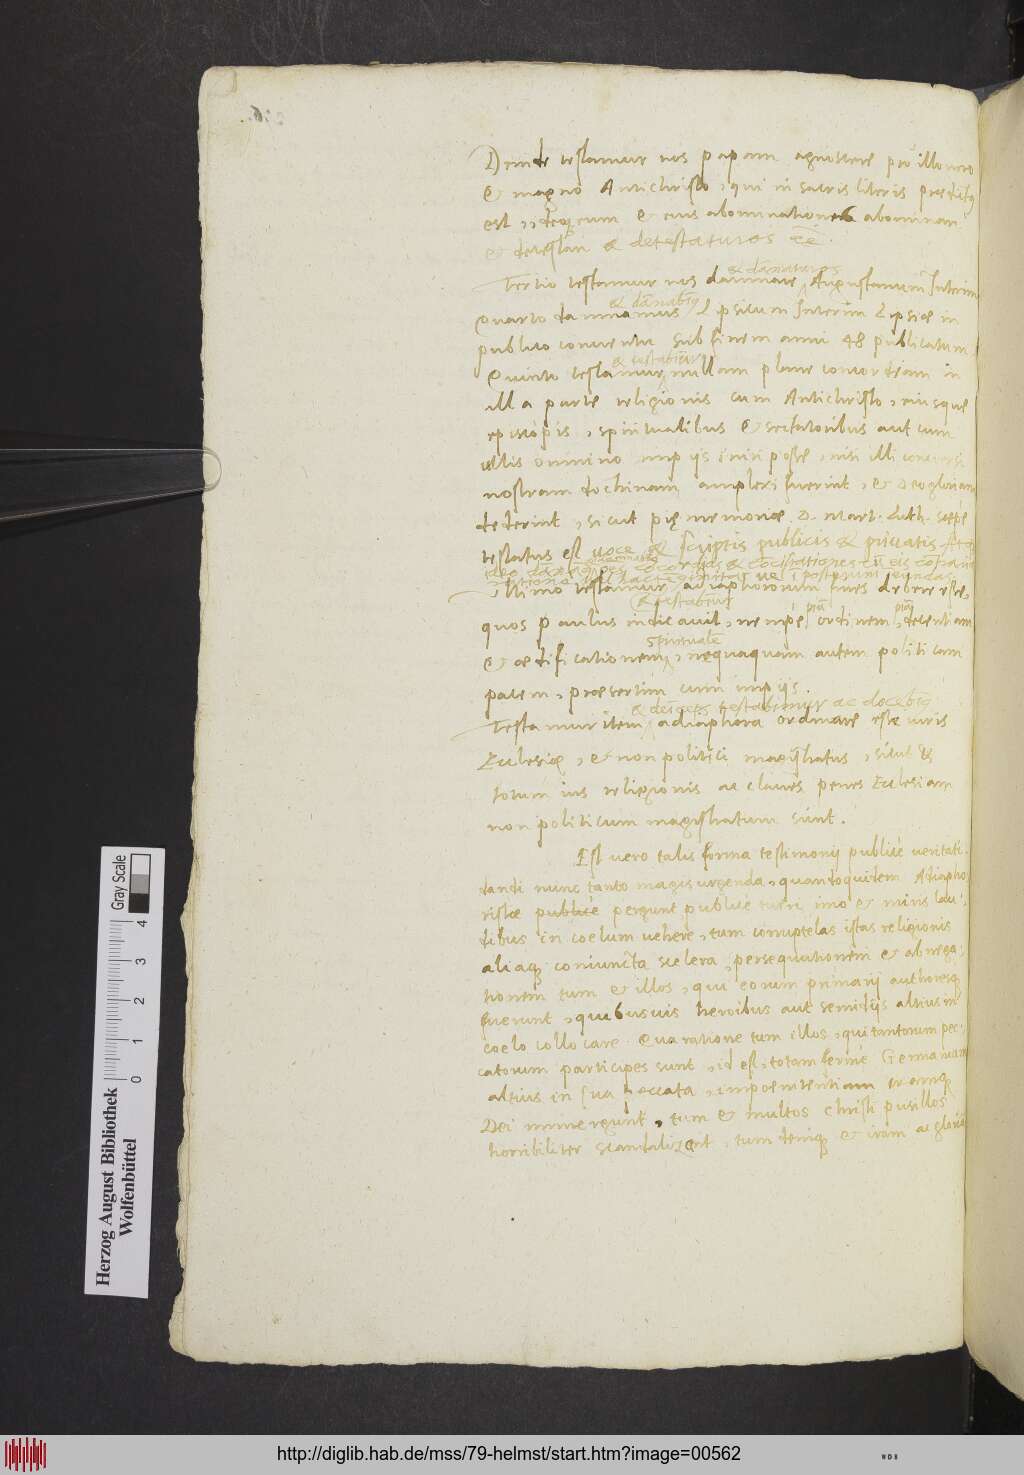 Deinde testamur nos papam agnoscere pro illo vero
& magno Antichristo, qui in sacris literis praedictus
est, ideoque eum & eius abominationes abominari
& detestari & detestaturos eē.
& damnaturos
Tertio testamur nos damnare Augustanum Interim
& damnabimus
Quarto damnamus Lipsicum Interim Lipsiae in
publico conventu sub finem anni 48 publicatum
& testabimur
Quinto testamur nullam plane concordiam in
illa parte religionis cum Antichristo, eiusque
episcopis, spiritualibus & sectatoribus aut cum
ullis omnino impijs iniri posse, nisi illi conversi
nostram doctrinam amplexi fuerint, & Deo gloriam
dederint, sicut pię memoriae D. Mart. Luth. saepe
testatus est voce & scriptis publicis & privatis
testamur adiaphororum fines debere esse,
& testabimur
piam
piam
quos Paulus indicavit, nempe ordinem, decentiam
spiritualē
& aedificationem, nequaquam autem politicam
pacem, praesertim cum impijs.
& deinceps testabimur ac docebimus
Testamur item adiaphora ordinare esse iuris
Ecclesiae, & non politici magistratus, sicut &
totum ius religionis ac claves penes Ecclesiam
non politicum magistratum sunt.
Est vero talis forma testimonij publicè veritati
dandi nunc tanto magis urgenda, quandoquidem Adiapho
ristae publicè pergunt publicè tueri imo & miris lau
dibus in coelum vehere, tum corruptelas istas religionis
aliaque coniuncta scelera, persequutionem & abnega
tionem tum & illos, qui eorum primarij authoresque
fuerunt, quibusvis heroibus aut semidijs altius in
coelo collocare. Qua ratione tum illos, qui tantorum pec
catorum participes sunt, id est, totam fermè Germaniam
altius in sua peccata, impoenitentiam iramque
Dei immergunt, tum & multos Christi pusillos
horribiliter scandalizant, tum denique & iram ac gloriā
Herzog August Bibliothek
Wolfenbüttel
0 1 2 3 4
Gray Scale
http://diglib.hab.de/mss/79-helmst/start.htm?image=00562